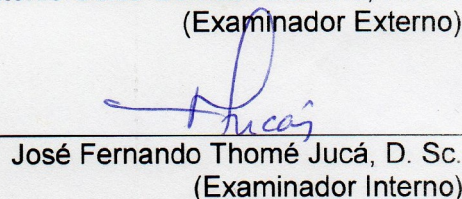 (Examinador Externo)
Jucá
José Fernando Thomé Jucá, D. Sc.
(Examinador Interno)